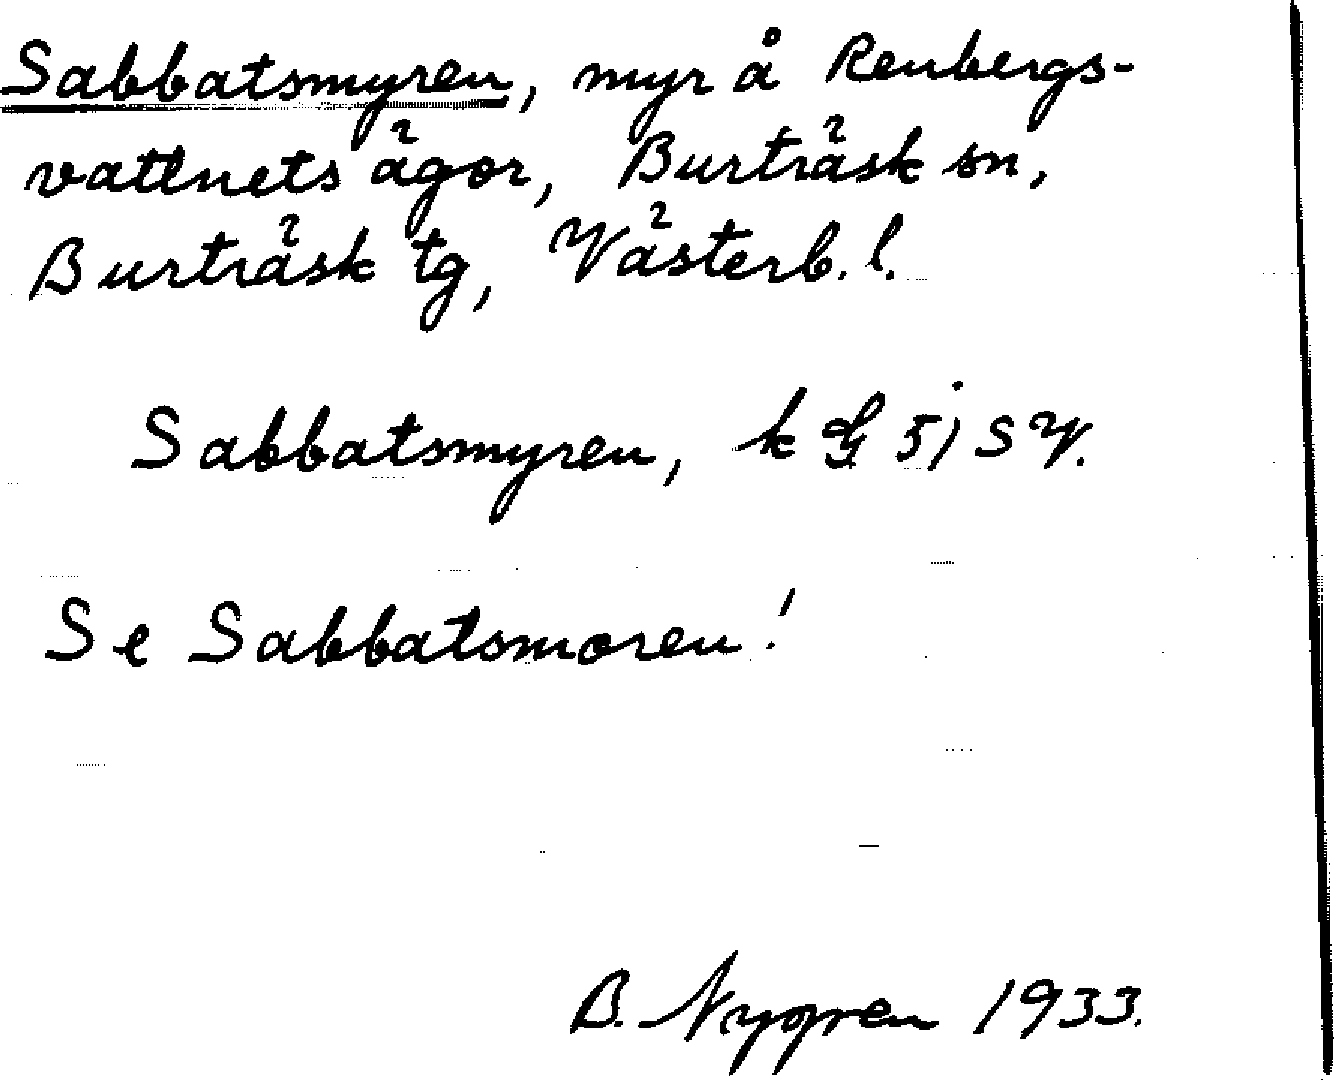 Sabbatsmyren, myr å Renbergs-
vattnets ägor, Burträsk sn,
Burträsk tg, Västerb. l.
Sabbatsmyren, k G 5j SV.
Se Sabbatsmoren!
B. Nygren 1933.